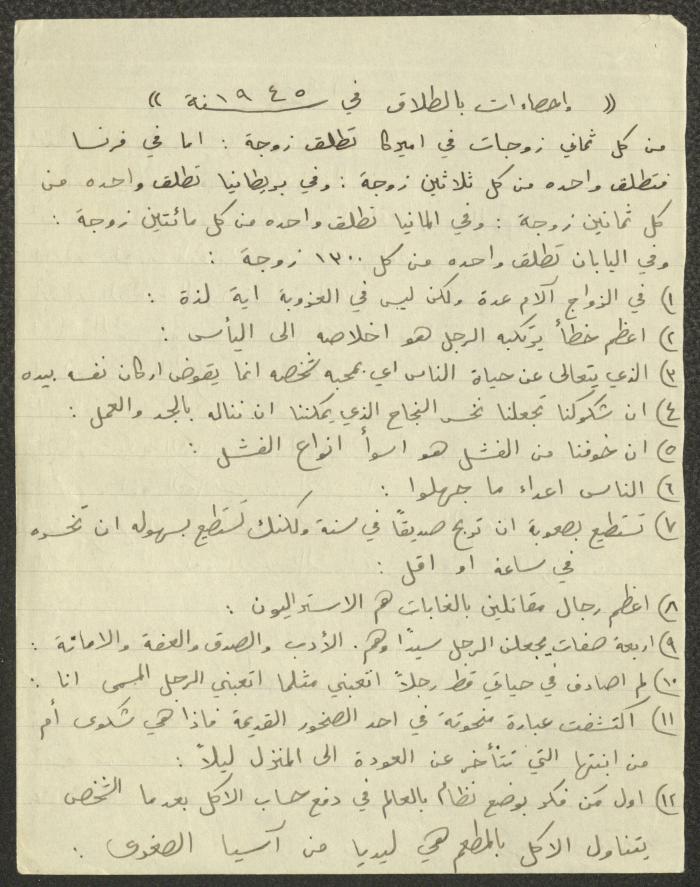 « واحصاءات بالطلاق في ١٩٤٥ سنة »
من كل ثماني زوجات في اميركا تطلق زوجة : اما في فرنسا
فتطلق واحده من كل ثلاثين زوجة : وفي بريطانيا تطلق واحده من
كل ثمانين زوجة : وفي المانيا تطلق واحده من كل مائتين زوجة :
وفي اليابان تطلق واحده من كل ١٣٠٠ زوجة :
١) في الزواج آلام عدة ولكن ليس في العزوبة اية لذة :
٢) اعظم خطأ يرتكبه الرجل هو اخلاصه الى اليأس :
٣) الذي يتعالى عن حياة الناس اي بمحبه شخصه انما يقوض اركان نفسه بيده
٤) ان شكوكنا تجعلنا نخسر النجاح الذي يمكننا ان نناله بالجد والعمل :
٥) ان خوفنا من الفشل هو اسوأ انواع الفشل :
٦) الناس اعداء ما جهلوا :
٧) تستطيع بصعوبة ان تربح صديقاً في سنة ولكنك تستطيع بسهوله ان تخسره
في ساعة او اقل :
٨) اعظم رجال مقاتلين بالغابات هم الاستراليون :
٩) اربعة صفات يجعلن الرجل سيدًا وهم . الأدب والصدق والعفة والامانة :
١٠) لم اصادف في حياتي قط رجلاً اتعبني مثلما اتعبني الرجل المسمى انا :
١١) اكتشفت عبارة منحوتة في احد الصخور القديمة فاذا هي شكوى أم
من ابنتها التي تتأخر عن العودة الى المنزل ليلاً :
١٢) اول مَن فكر بوضع نظام بالعالم في دفع حساب الاكل بعدما الشخص
يتناول الاكل بالمطعم هي ليديا من آسيا الصغرى :